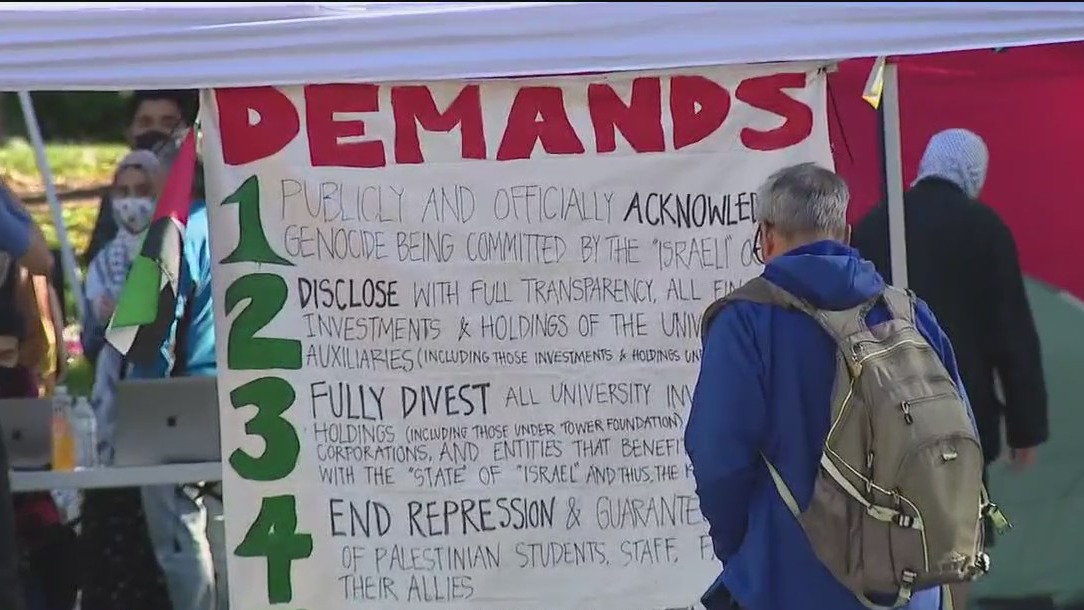 DEMANDS
1 PUBLICLY AND OFFICIALLY
GENOCIDE BEING COMMITTED BY THE "ISRAELI"
2 DISCLOSE WITH FULL TRANSPARENCY, ALL
INVESTMENTS & HOLDINGS OF THE
AUXILIARIES (INCLUDING THOSE INVESTMENTS & HOLDINGS
3 FULLY DIVEST ALL UNIVERSITY
HOLDINGS (INCLUDING THOSE UNDER TOWER FOUNDATION)
CORPORATIONS, AND ENTITIES THAT
WITH THE "STATE" OF "ISRAEL" AND THUS, THE
4 END REPRESSION &
OF PALESTINIAN STUDENTS, STAFF,
THEIR ALLIES